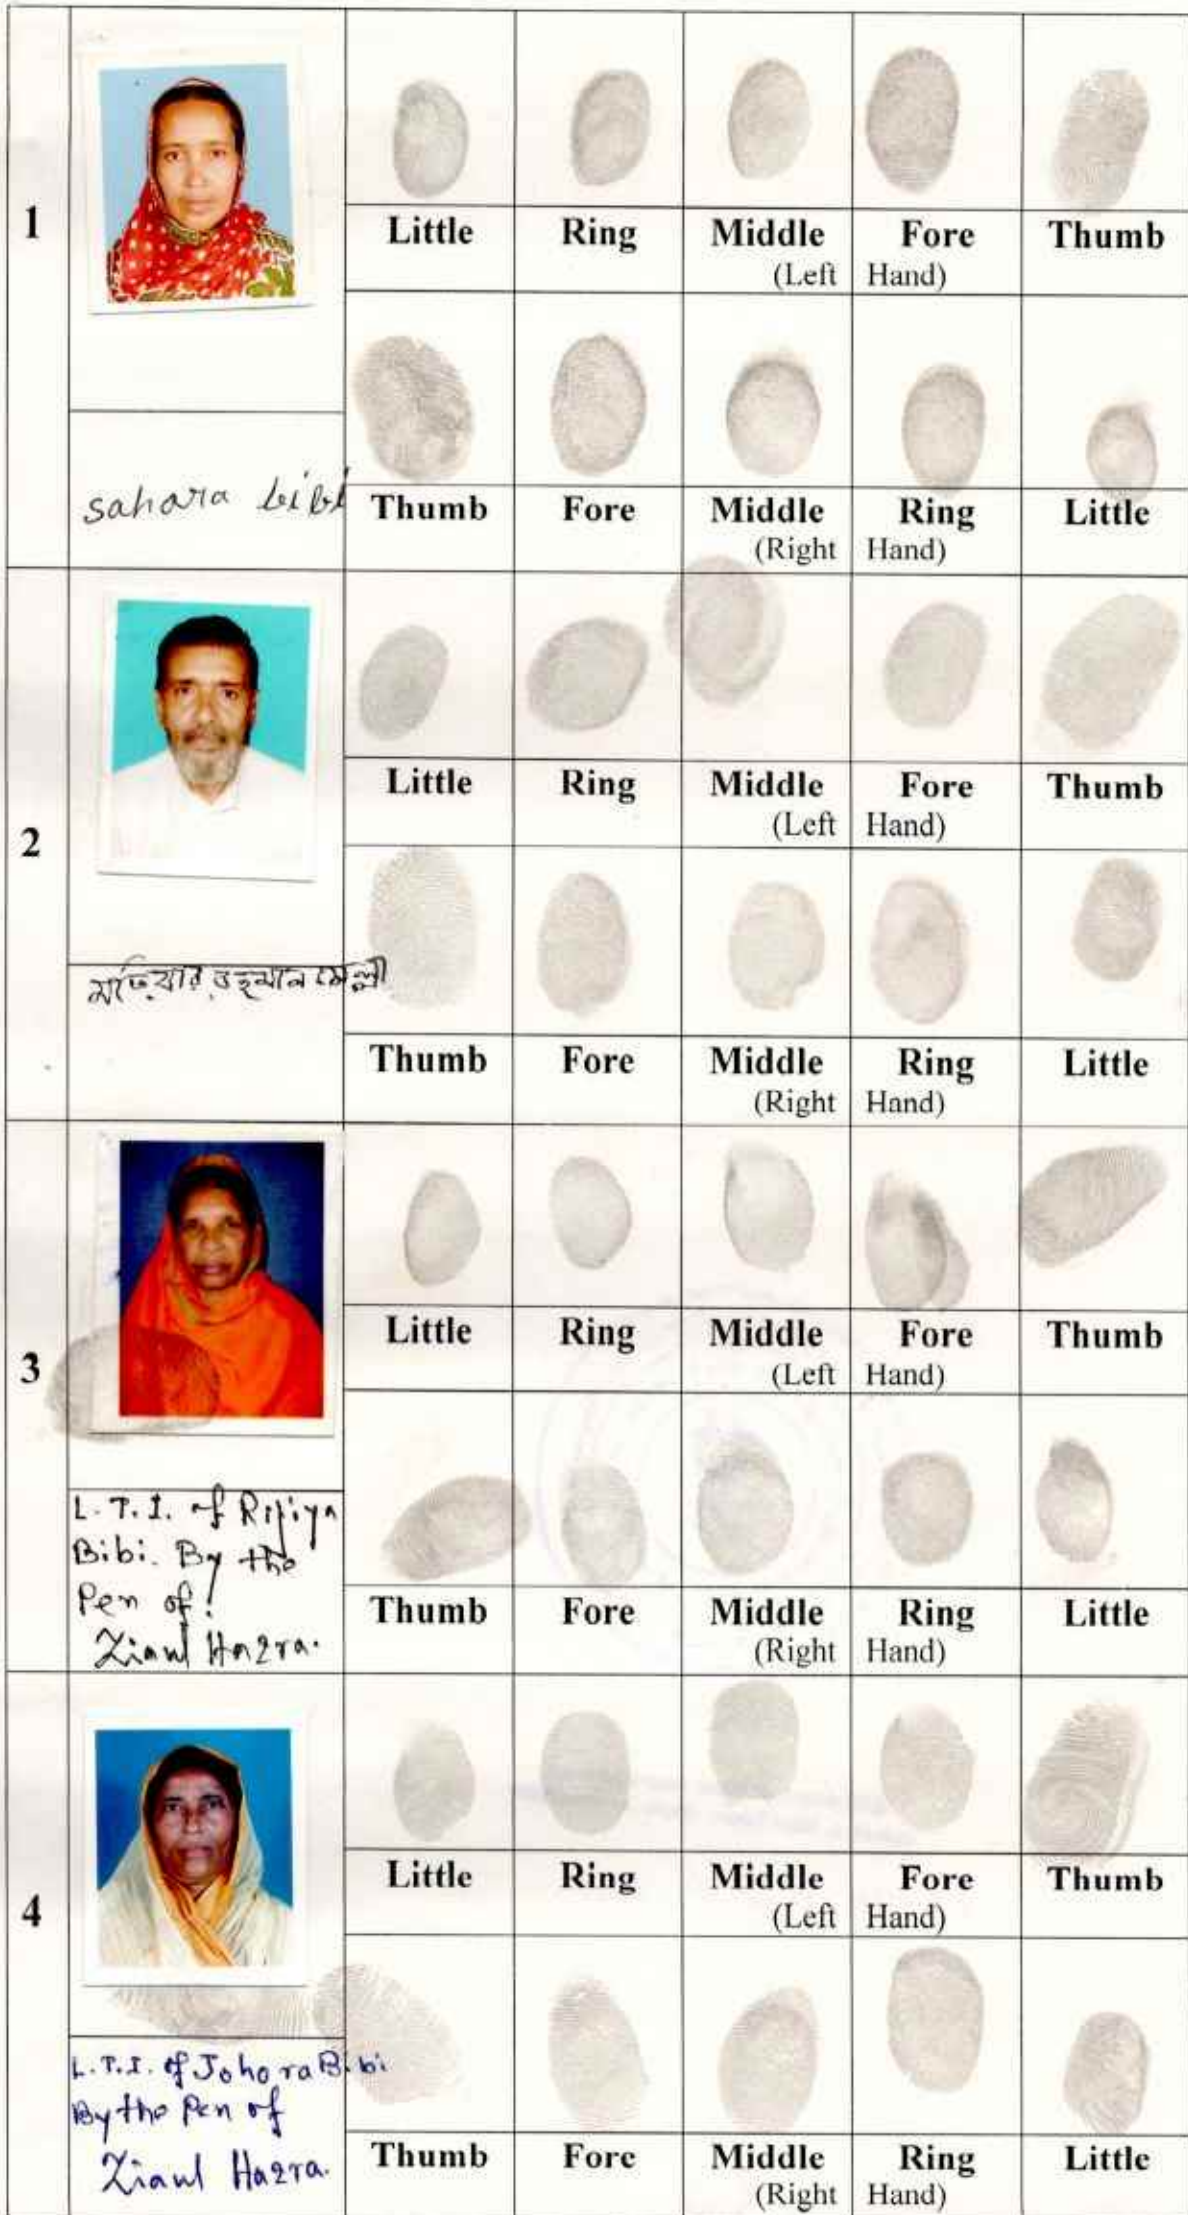 1
Little Ring Middle Fore Thumb
(Left Hand)
sahara bibi
Thumb Fore Middle Ring Little
(Right Hand)
2
Little Ring Middle Fore Thumb
(Left Hand)
মতিয়ার রহমান মোল্লা
Thumb Fore Middle Ring Little
(Right Hand)
3
Little Ring Middle Fore Thumb
(Left Hand)
L.T.I. of Rifiya
Bibi. By the
Pen of
Ziaul Hazra.
Thumb Fore Middle Ring Little
(Right Hand)
4
Little Ring Middle Fore Thumb
(Left Hand)
L.T.I. of Johora Bibi
By the Pen of
Ziaul Hazra.
Thumb Fore Middle Ring Little
(Right Hand)